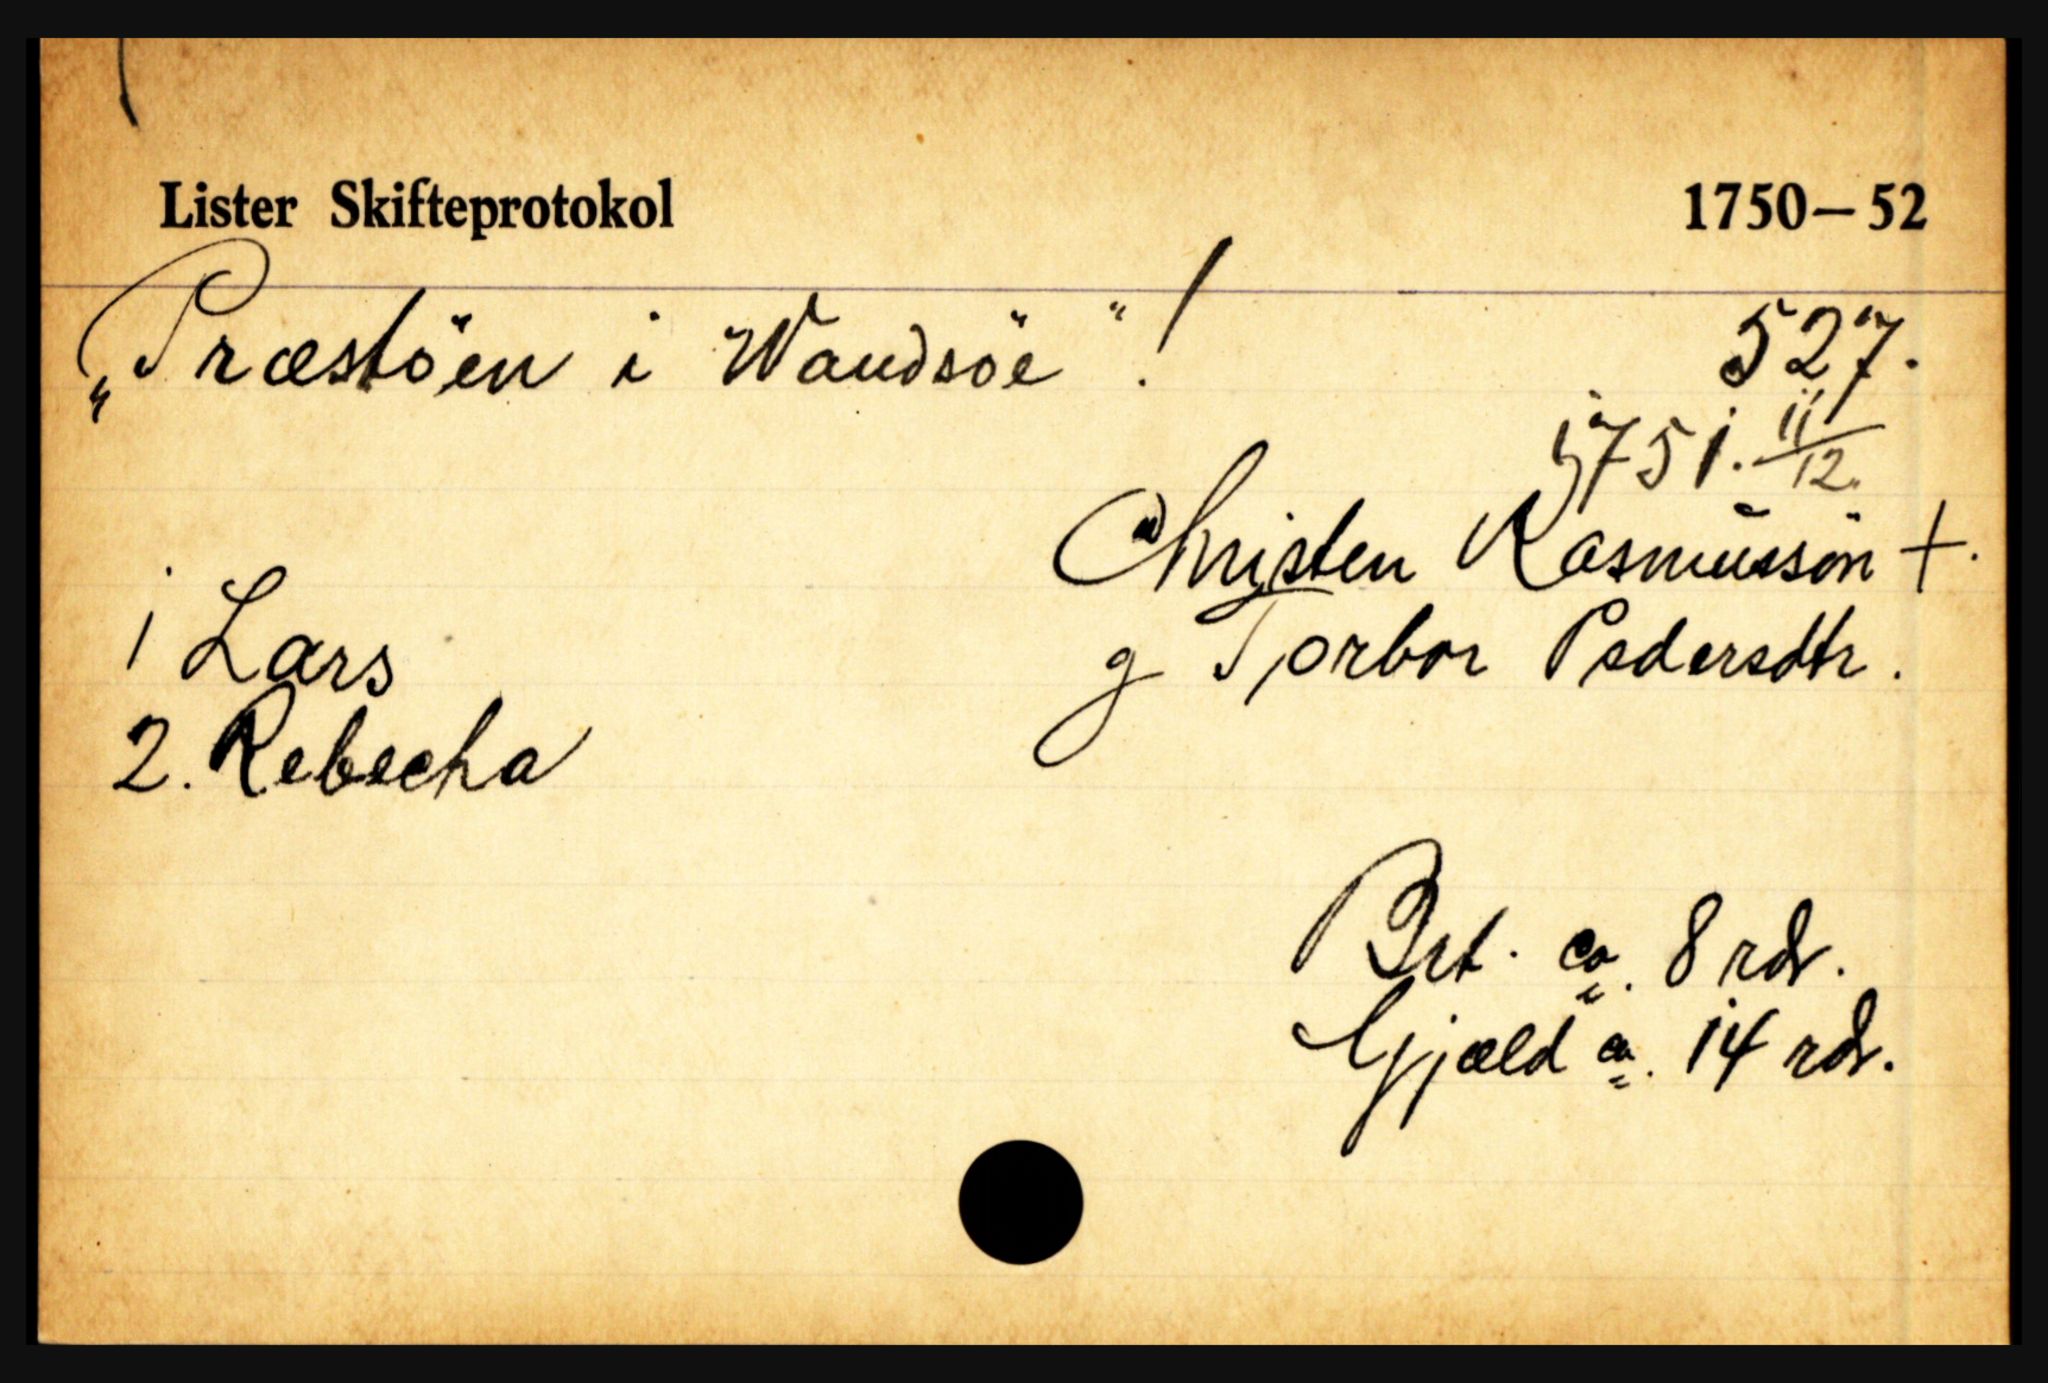 Lister Skifteprotokol 1750–52
„Præstöen i Wandsöe"!
527.
1751. 11/12.
Christen Rasmussön +.
g Torbor Pedersdtr.
1 Lars
2. Rebecha
Brt. ca. 8 rdr.
Gjæld ca. 14 rdr.